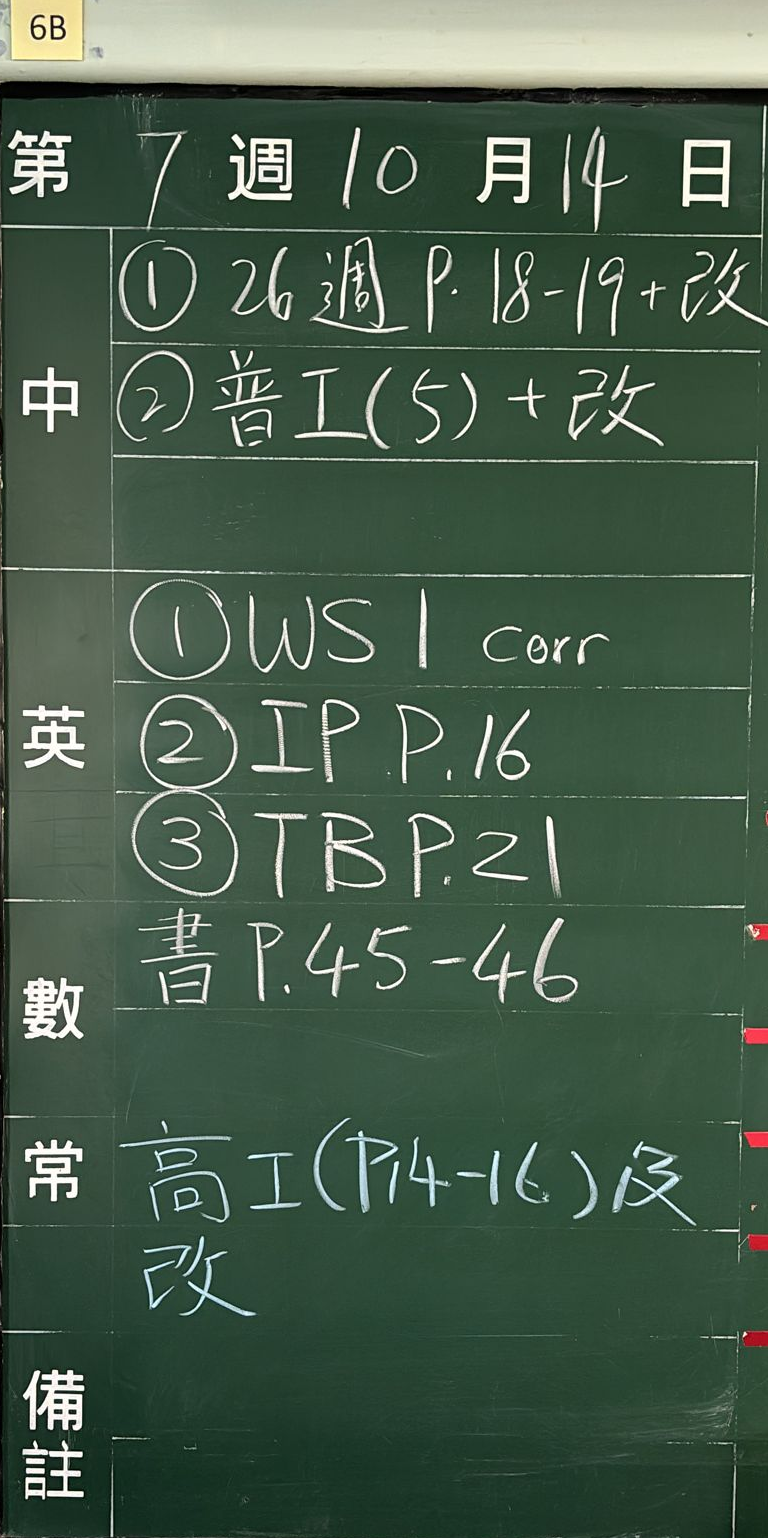 6B
第 7 週 10 月 14 日
中
① 26週 P.18-19+改
② 普工(5)+改
英
① WS 1 corr
② IP P.16
③ TB P.21
數
書 P.45-46
常
高工(P.14-16)及
改
備註